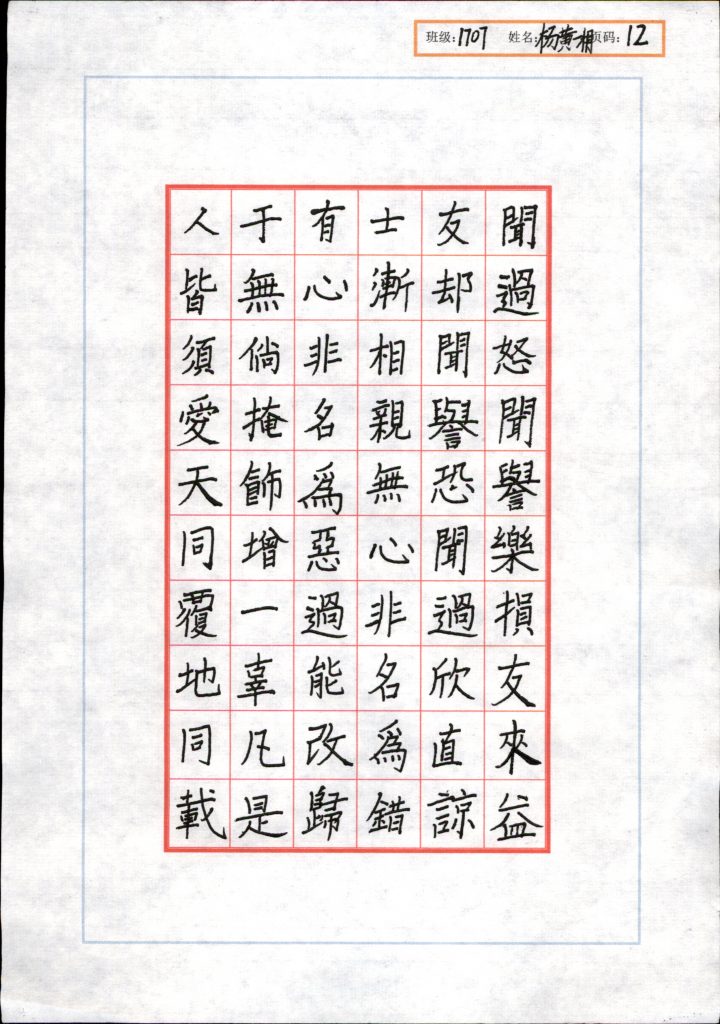 班级:1707 姓名:杨黄相 页码:12
聞過怒聞譽樂損友來益
友却聞譽恐聞過欣直諒
士漸相親無心非名為錯
有心非名為惡過能改歸
于無倘掩飾增一辜凡是
人皆須愛天同覆地同載